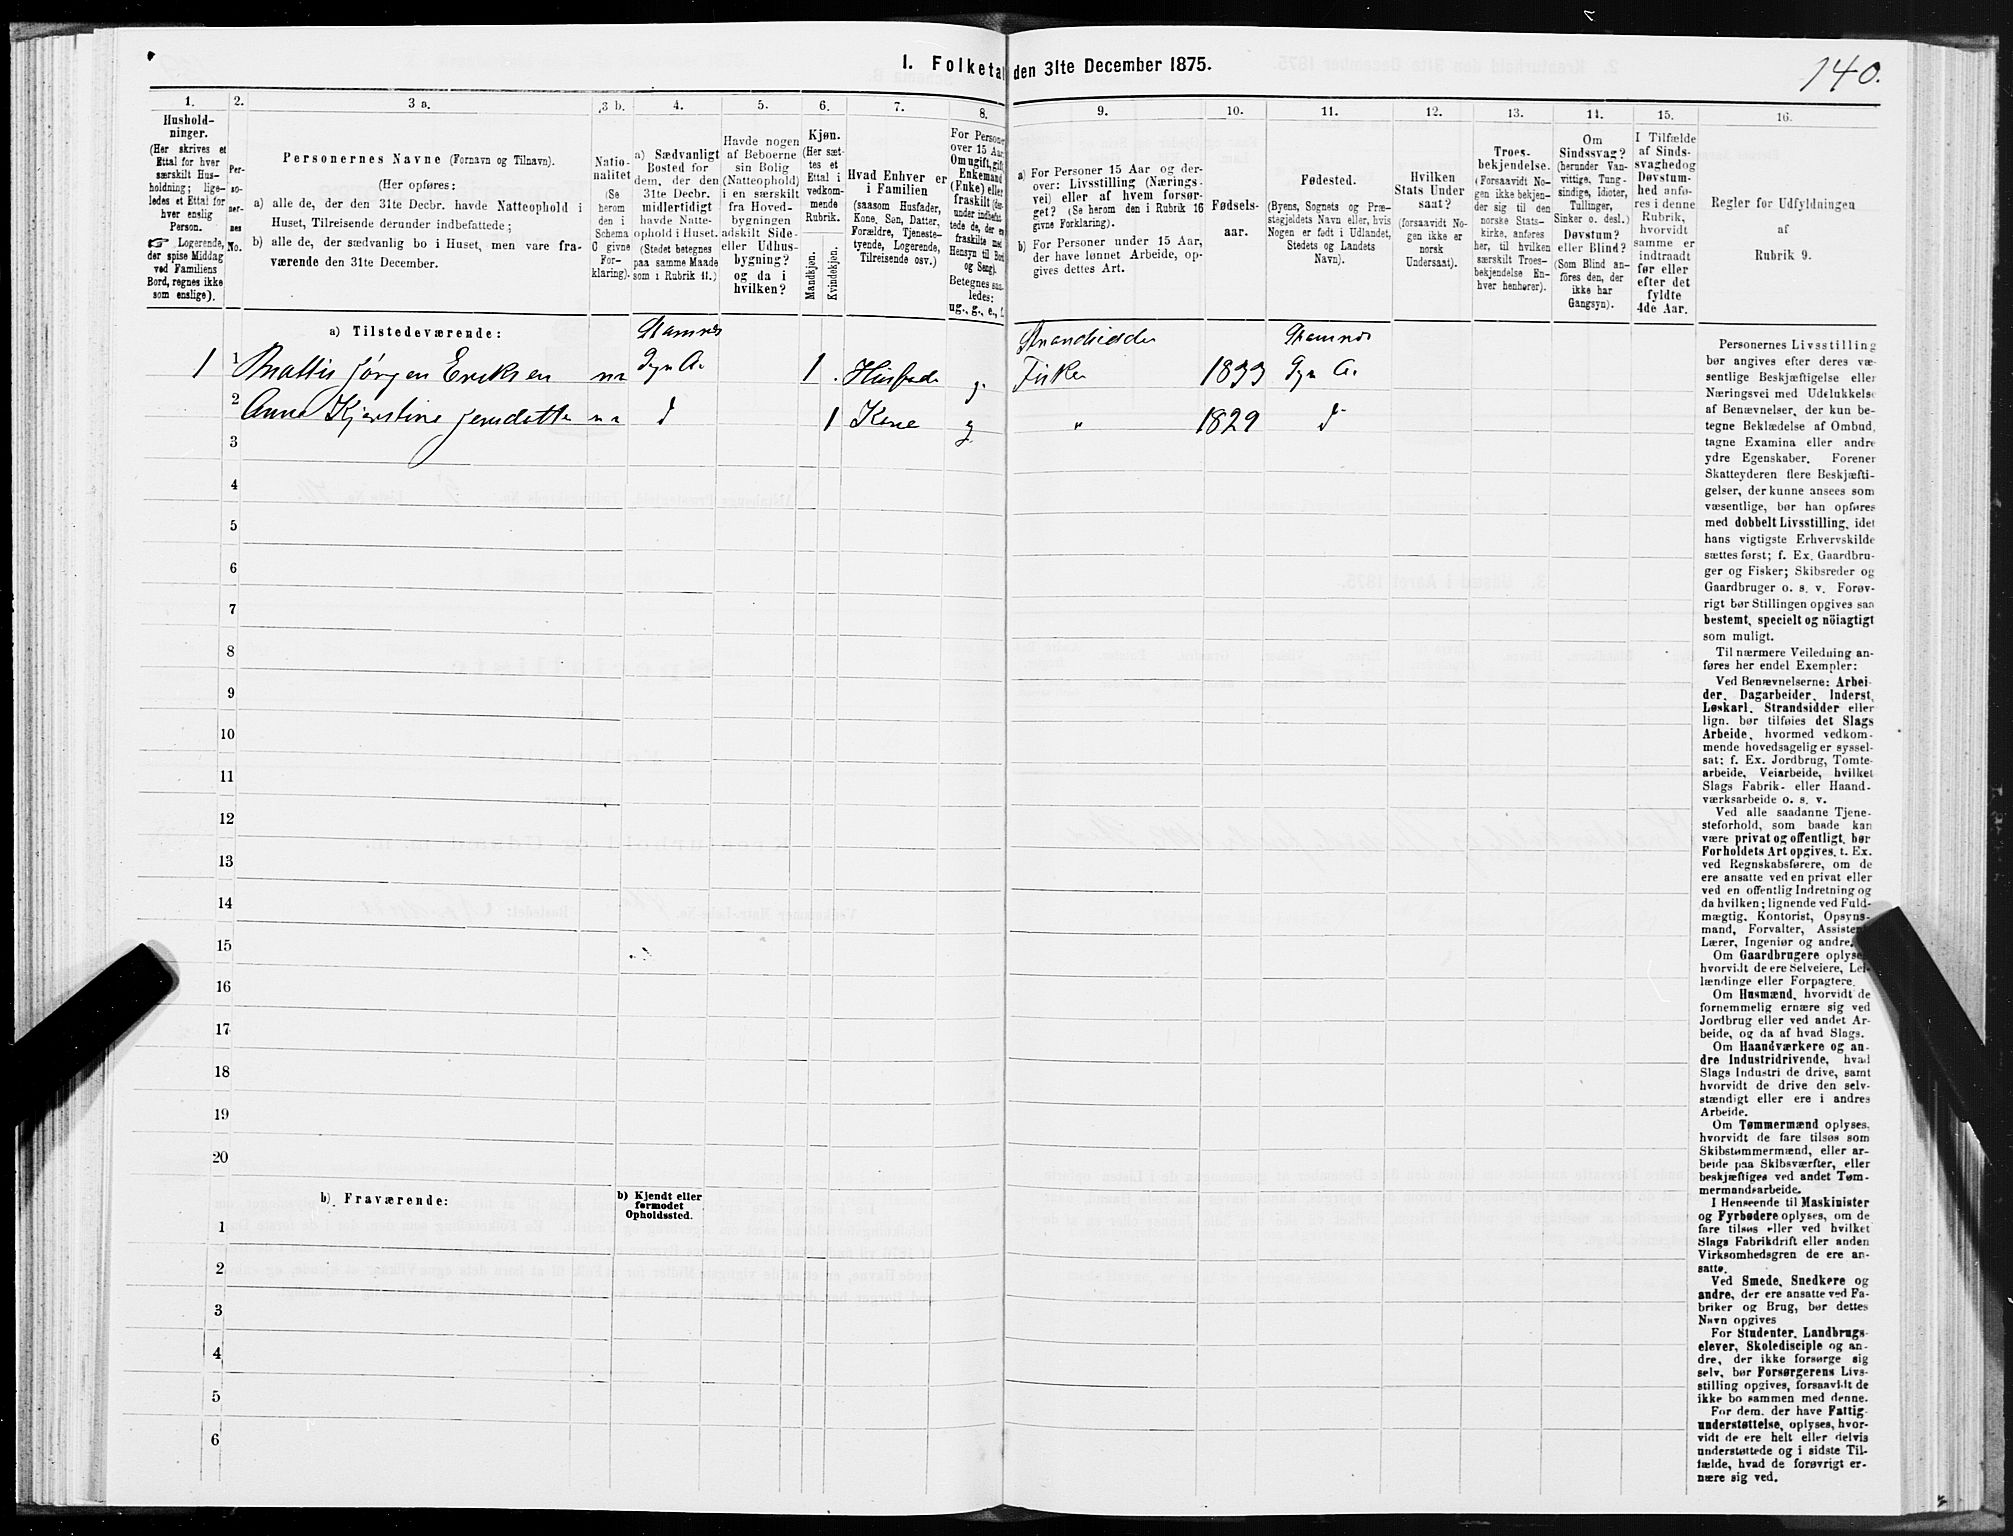 I. Folketal den 31te December 1875.
140.
1.
2.
3 a.
3 b.
4.
5.
6.
7.
8.
9.
10.
11.
12.
13.
14.
15.
16.
Hushold-
ninger.
(Her skrives et
Ettal for hver
særskilt Hus-
holdning; lige-
ledes et Ettal for
hver enslig
Person.
☞ Logerende,
der spise Middag
ved Familiens
Bord, regnes ikke
som enslige).
Per-
so-
ner-
nes
No.
Personernes Navne (Fornavn og Tilnavn).
(Her opføres:
a) alle de, der den 31te Decbr. havde Natteophold i
Huset, Tilreisende derunder indbefattede;
b) alle de, der sædvanlig bo i Huset, men vare fra-
værende den 31te December.
Natio-
nalitet
(Se
herom
den i
Schema
C givne
For-
klaring).
a) Sædvanligt
Bosted for
dem, der den
31te Decbr.
midlertidigt
havde Natte-
ophold i Huset.
(Stedet betegnes
paa samme Maade
som i Rubrik 11.)
Havde nogen
af Beboerne
sin Bolig
(Natteophold)
i en særskilt
fra Hoved-
bygningen
adskilt Side-
eller Udhus-
bygning?
og da i
hvilken?
Kjøn.
(Her sæt-
tes et
Ettal i
vedkom-
mende
Rubrik.
Mandkjøn.
Kvindekjøn.
Hvad Enhver er
i Familien
(saasom Husfader,
Kone, Søn, Datter,
Forældre, Tjeneste-
tyende, Logerende,
Tilreisende osv.)
For Personer
over 15 Aar:
Om ugift, gift,
Enkemand
(Enke) eller
fraskilt (der-
under indbefat-
tede de, der ere
fraskilte med
Hensyn til Bord
og Seng).
Betegnes saa-
ledes:
ug., g., e., f.
a) For Personer 15 Aar og der-
over: Livsstilling (Nærings-
vei) eller af hvem forsør-
get? (Se herom den i Rubrik 16
givne Forklaring).
b) For Personer under 15 Aar,
der have lønnet Arbeide, op-
gives dettes Art.
Fødsels-
aar.
Fødested.
(Byens, Sognets og Præ-
stegjeldets Navn eller, hvis
Nogen er født i Udlandet,
Stedets og Landets
Navn).
Hvilken
Stats Under-
saat?
(forsaavidt No-
gen ikke er
norsk
Undersaat).
Troes-
bekjendelse.
(Forsaavidt No-
gen ikke bekjen-
der sig til den
norske Stats-
kirke, anføres
her, til hvilken
særskilt Troes-
bekjendelse En-
hver henhører).
Om
Sindssvag?
(herunder Van-
vittige, Tung-
sindige, Idioter,
Tullinger,
Sinker o. desl.)
Døvstum?
eller Blind?
(Som Blind an-
føres den, der
ikke har
Gangsyn).
I Tilfælde
af Sinds-
svaghed og
Døvstum-
hed anfø-
res i denne
Rubrik,
hvorvidt
samme er
indtraadt
før eller
efter det
fyldte
4de Aar.
Regler for Udfyldningen
af
Rubrik 9.
a) Tilstedeværende:
Stamnes
Strandsidder
Stamnes
1 1 Mattis Jørgen Eriksen nn Dyn A. 1. Husfader g. Fisker 1833 Dyn A.
2 Anne Kjerstine Jensdatter nn d 1 Kone g " 1829 d
3
4
5
6
7
8
9
10
11
12
13
14
15
16
17
18
19
20
b) Fraværende:
b) Kjendt eller
formodet
Opholdssted.
1
2
3
4
5
6
Personernes Livsstilling
bør angives efter deres væ-
sentlige Beskjæftigelse eller
Næringsvei med Udelukkelse
af Benævnelser, der kun be-
tegne Beklædelse af Ombud,
tagne Examina eller andre
ydre Egenskaber. Forener
Skatteyderen flere Beskjæfti-
gelser, der kunne ansees som
væsentlige, bør han opføres
med dobbelt Livsstilling, idet
hans vigtigste Erhvervskilde
sættes først; f. Ex. Gaardbru-
ger og Fisker; Skibsreder og
Gaardbruger o. s. v. Forøv-
rigt bør Stillingen opgives saa
bestemt, specielt og nöiagtigt
som muligt.
Til nærmere Veiledning an-
føres her endel Exempler:
Ved Benævnelserne: Arbei-
der, Dagarbeider, Inderst,
Løskarl, Strandsidder eller
lign. bør tilføies det Slags
Arbeide, hvormed vedkom-
mende hovedsagelig er syssel-
sat; f. Ex. Jordbrug, Tomte-
arbeide, Veiarbeide, hvilket
Slags Fabrik- eller Haand-
værksarbeide o. s. v.
Ved alle saadanne Tjene-
steforhold, som baade kan
være privat og offentligt, bør
Forholdets Art opgives, t. Ex.
ved Regnskabsførere, om de
ere ansatte ved en privat eller
ved en offentlig Indretning og
da hvilken; lignende ved Fuld-
mægtig, Kontorist, Opsyns-
mand, Forvalter, Assistent,
Lærer, Ingeniør og andre.
Om Gaardbrugere oplyses,
hvorvidt de ere Selveiere, Lei-
lændinge eller Forpagtere.
Om Husmænd, hvorvidt de
fornemmelig ernære sig ved
Jordbrug eller ved andet Ar-
beide, og da af hvad Slags.
Om Haandværkere og an-
dre Industridrivende, hvad
Slags Industri de drive, samt
hvorvidt de drive den selv-
stændigt eller ere i andres
Arbeide.
Om Tømmermænd oplyses,
hvorvidt de fare tilsøs som
Skibstømmermænd, eller ar-
beide paa Skibsværfter, eller
beskjæftiges ved andet Tøm-
mermandsarbeide.
I Henseende til Maskinister
og Fyrbødere oplyses, om de
fare tilsøs eller ved hvilket
Slags Fabrikdrift eller anden
Virksomhedsgren de ere an-
satte.
Ved Smede, Snedkere og
andre, der ere ansatte ved Fa-
briker og Brug, bør dettes
Navn opgives
For Studenter, Landbrugs-
elever, Skoledisciple og an-
dre, der ikke forsørge sig
selv, bør Forsørgerens Livs-
stilling opgives, forsaavidt de
ikke bo sammen med denne.
For dem, der have Fattig-
understøttelse, oplyses, hvor-
vidt de ere helt eller delvis
understøttede og i sidste Til-
fælde, hvad de forøvrigt er-
nære sig ved.